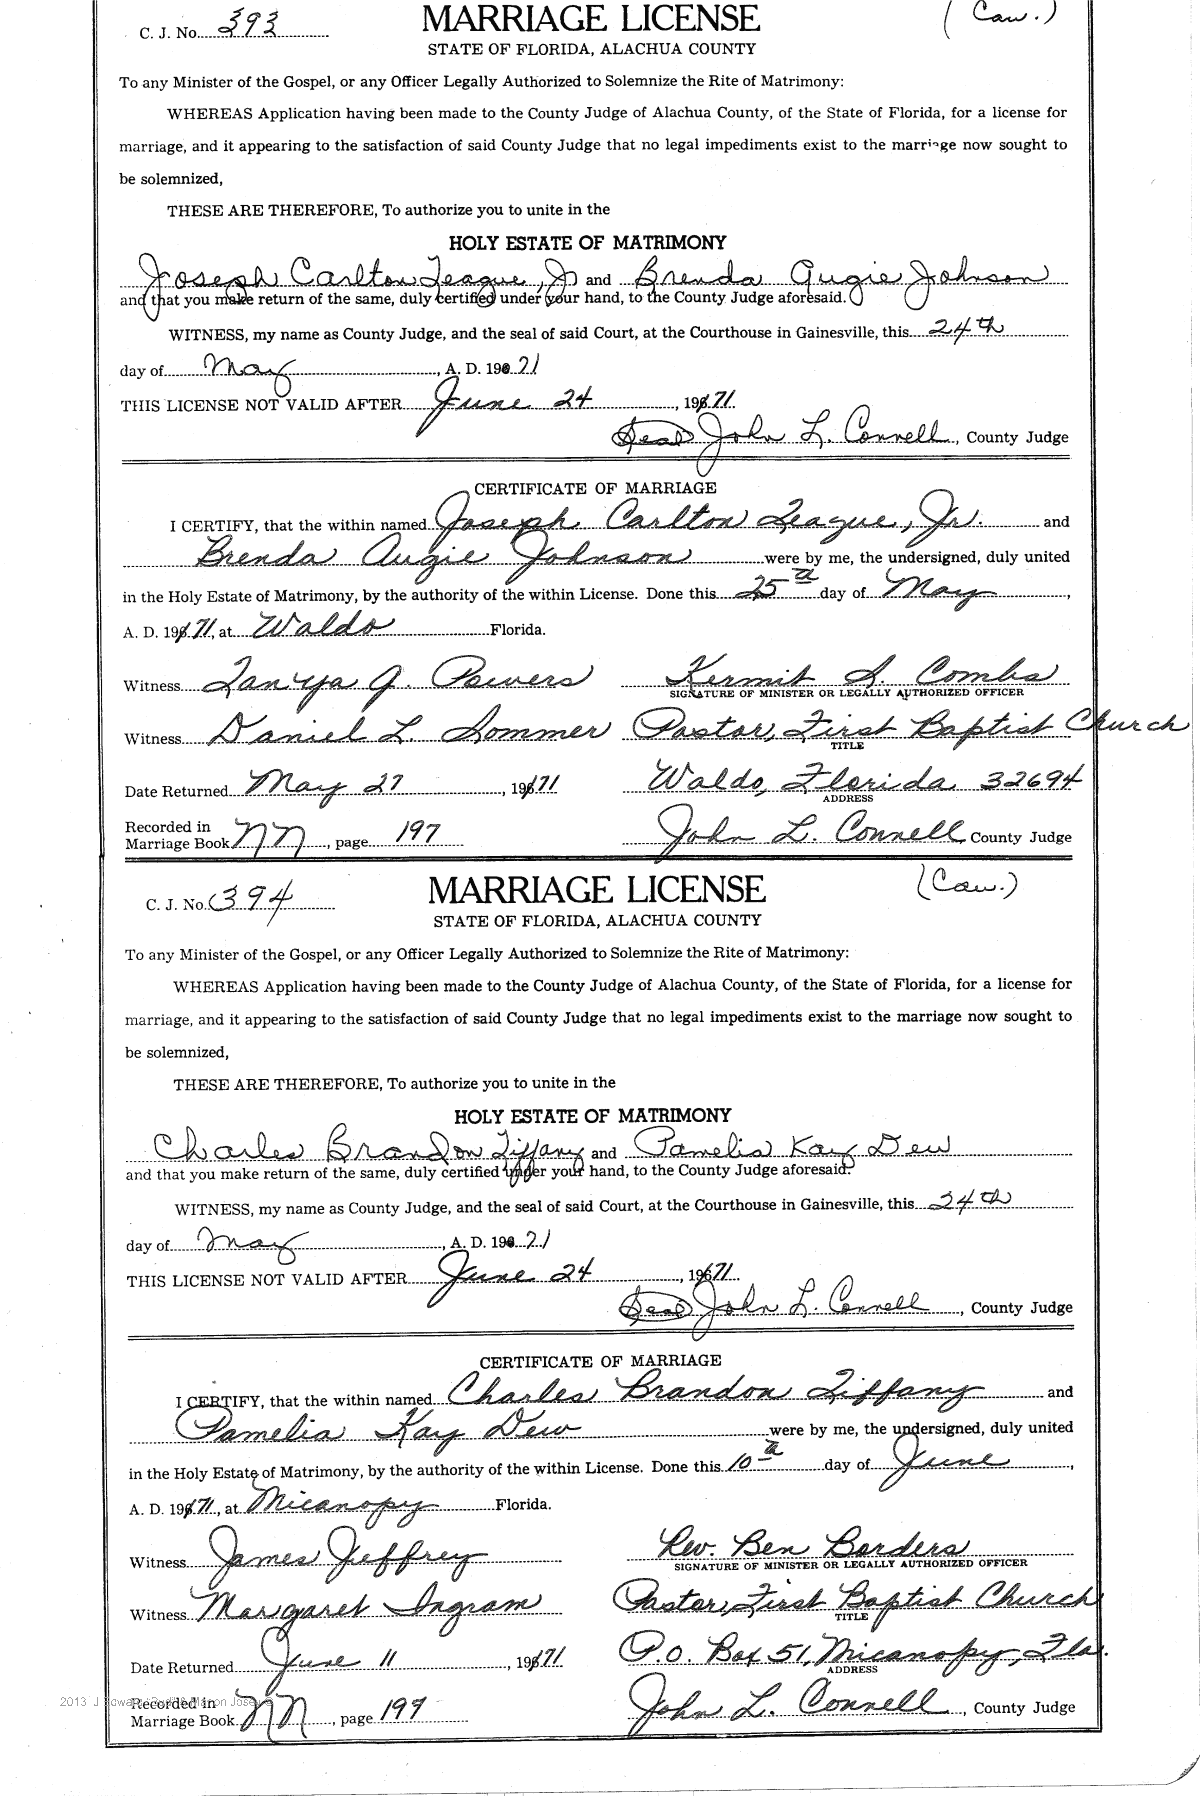 C. J. No. 393 MARRIAGE LICENSE (Caw.)
STATE OF FLORIDA, ALACHUA COUNTY
To any Minister of the Gospel, or any Officer Legally Authorized to Solemnize the Rite of Matrimony:
WHEREAS Application having been made to the County Judge of Alachua County, of the State of Florida, for a license for
marriage, and it appearing to the satisfaction of said County Judge that no legal impediments exist to the marriage now sought to
be solemnized,
THESE ARE THEREFORE, To authorize you to unite in the
HOLY ESTATE OF MATRIMONY
Joseph Carlton League, Jr and Brenda Augie Johnson
and that you make return of the same, duly certified under your hand, to the County Judge aforesaid.
WITNESS, my name as County Judge, and the seal of said Court, at the Courthouse in Gainesville, this 24th
day of May, A. D. 1971
THIS LICENSE NOT VALID AFTER June 24, 1971
(Seal) John L. Connell, County Judge
CERTIFICATE OF MARRIAGE
I CERTIFY, that the within named Joseph Carlton League, Jr. and
Brenda Augie Johnson were by me, the undersigned, duly united
in the Holy Estate of Matrimony, by the authority of the within License. Done this 25th day of May,
A. D. 1971, at Waldo Florida.
Witness Tanya J. Powers Kermit S. Combs
SIGNATURE OF MINISTER OR LEGALLY AUTHORIZED OFFICER
Witness Daniel L. Sommer Pastor, First Baptist Church
TITLE
Date Returned May 27, 1971 Waldo, Florida 32694
ADDRESS
Recorded in
Marriage Book NN, page 197 John L. Connell County Judge
C. J. No. 394 MARRIAGE LICENSE (Caw.)
STATE OF FLORIDA, ALACHUA COUNTY
To any Minister of the Gospel, or any Officer Legally Authorized to Solemnize the Rite of Matrimony:
WHEREAS Application having been made to the County Judge of Alachua County, of the State of Florida, for a license for
marriage, and it appearing to the satisfaction of said County Judge that no legal impediments exist to the marriage now sought to
be solemnized,
THESE ARE THEREFORE, To authorize you to unite in the
HOLY ESTATE OF MATRIMONY
Charles Brandon Tiffany and Pamelia Kay Dew
and that you make return of the same, duly certified under your hand, to the County Judge aforesaid.
WITNESS, my name as County Judge, and the seal of said Court, at the Courthouse in Gainesville, this 24th
day of May, A. D. 1971
THIS LICENSE NOT VALID AFTER June 24, 1971
(Seal) John L. Connell, County Judge
CERTIFICATE OF MARRIAGE
I CERTIFY, that the within named Charles Brandon Tiffany and
Pamelia Kay Dew were by me, the undersigned, duly united
in the Holy Estate of Matrimony, by the authority of the within License. Done this 10th day of June,
A. D. 1971, at Micanopy Florida.
Witness James Jeffrey Rev. Ben Borders
SIGNATURE OF MINISTER OR LEGALLY AUTHORIZED OFFICER
Witness Margaret Ingram Pastor, First Baptist Church
TITLE
Date Returned June 11, 1971 P.O. Box 51, Micanopy, Fla.
ADDRESS
2013 Recorded in
Marriage Book NN, page 197 John L. Connell, County Judge